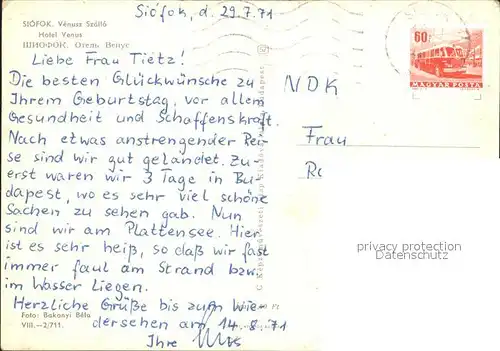 SIÓFOK. Vénusz Szálló
Hotel Venus
ШИОФОК. Отель Венус
Siófok, d. 29.7.71
Liebe Frau Tietz!
Die besten Glückwünsche zu
Ihrem Geburtstag, vor allem
Gesundheit und Schaffenskraft.
Nach etwas anstrengender Rei-
se sind wir gut gelandet. Zu-
erst waren wir 3 Tage in Bu-
dapest, wo es sehr viel schöne
Sachen zu sehen gab. Nun
sind wir am Plattensee. Hier
ist es sehr heiß, so daß wir fast
immer faul am Strand bzw.
im Wasser liegen.
Herzliche Grüße bis zum Wie-
dersehen am 14.8.71
Ihre
Foto: Bakonyi Béla
VIII.—2/711.
60f
MAGYAR POSTA
NDK
Frau
privacy protection
Datenschutz